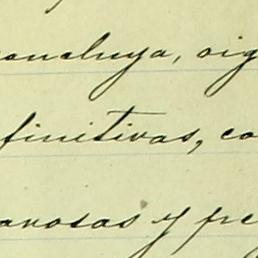 concluya, oig
finitivas, co
arosas y pe